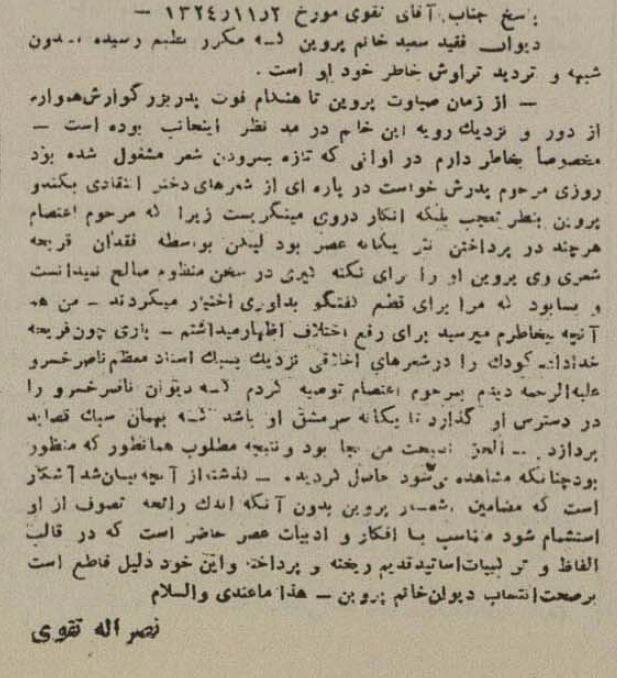 پاسخ جناب آقای تقوی مورخ ۲ر۱۱ر۱۳۲۴ –
دیوان فقید سعید خانم پروین که مکرر بطبع رسیده بدون
شبهه و تردید تراوش خاطر خود او است .
– از زمان صباوت پروین تا هنگام فوت پدر بزرگوارش همواره
از دور و نزدیک رویه این خانم در مد نظر اینجانب بوده است –
مخصوصاً بخاطر دارم در اوانی که تازه بسرودن شعر مشغول شده بود
روزی مرحوم پدرش خواست در پاره ای از شعرهای دختر انتقادی بکند و
پروین بنظر تعجب بلکه انکار در وی مینگریست زیرا که مرحوم اعتصام
هرچند در پرداختن نثر یگانه عصر بود لیکن بواسطه فقدان قریحه
شعری وی پروین او را برای نکته گیری در سخن منظوم صالح نمیدانست
و بسا بود که مرا برای قطع گفتگو بداوری اختیار میکردند – من هم
آنچه بخاطرم میرسید برای رفع اختلاف اظهار میداشتم – باری چون قریحه
خداداد کودک را در شعرهای اخلاقی نزدیک بسبک استاد معظم ناصر خسرو
علیه الرحمه دیدم بمرحوم اعتصام توصیه کردم که دیوان ناصر خسرو را
در دسترس او گذارد تا یگانه سرمشق او باشد که بهمان سبک قصاید
بپردازد – الحق نصیحت من بجا بود و نتیجه مطلوب همانطور که منظور
بود چنانکه مشاهده می‌شود حاصل گردید . – گذشته از آنچه بیان شد آشکار
است که مضامین اشعار پروین بدون آنکه اندک رائحه تصوف از او
استشمام شود مناسب با افکار و ادبیات عصر حاضر است که در قالب
الفاظ و ترکیبات اساتید قدیم ریخته و پرداخته و این خود دلیل قاطع است
بر صحت انتساب دیوان خانم پروین – هذا ما عندی والسلام
نصر اله تقوی